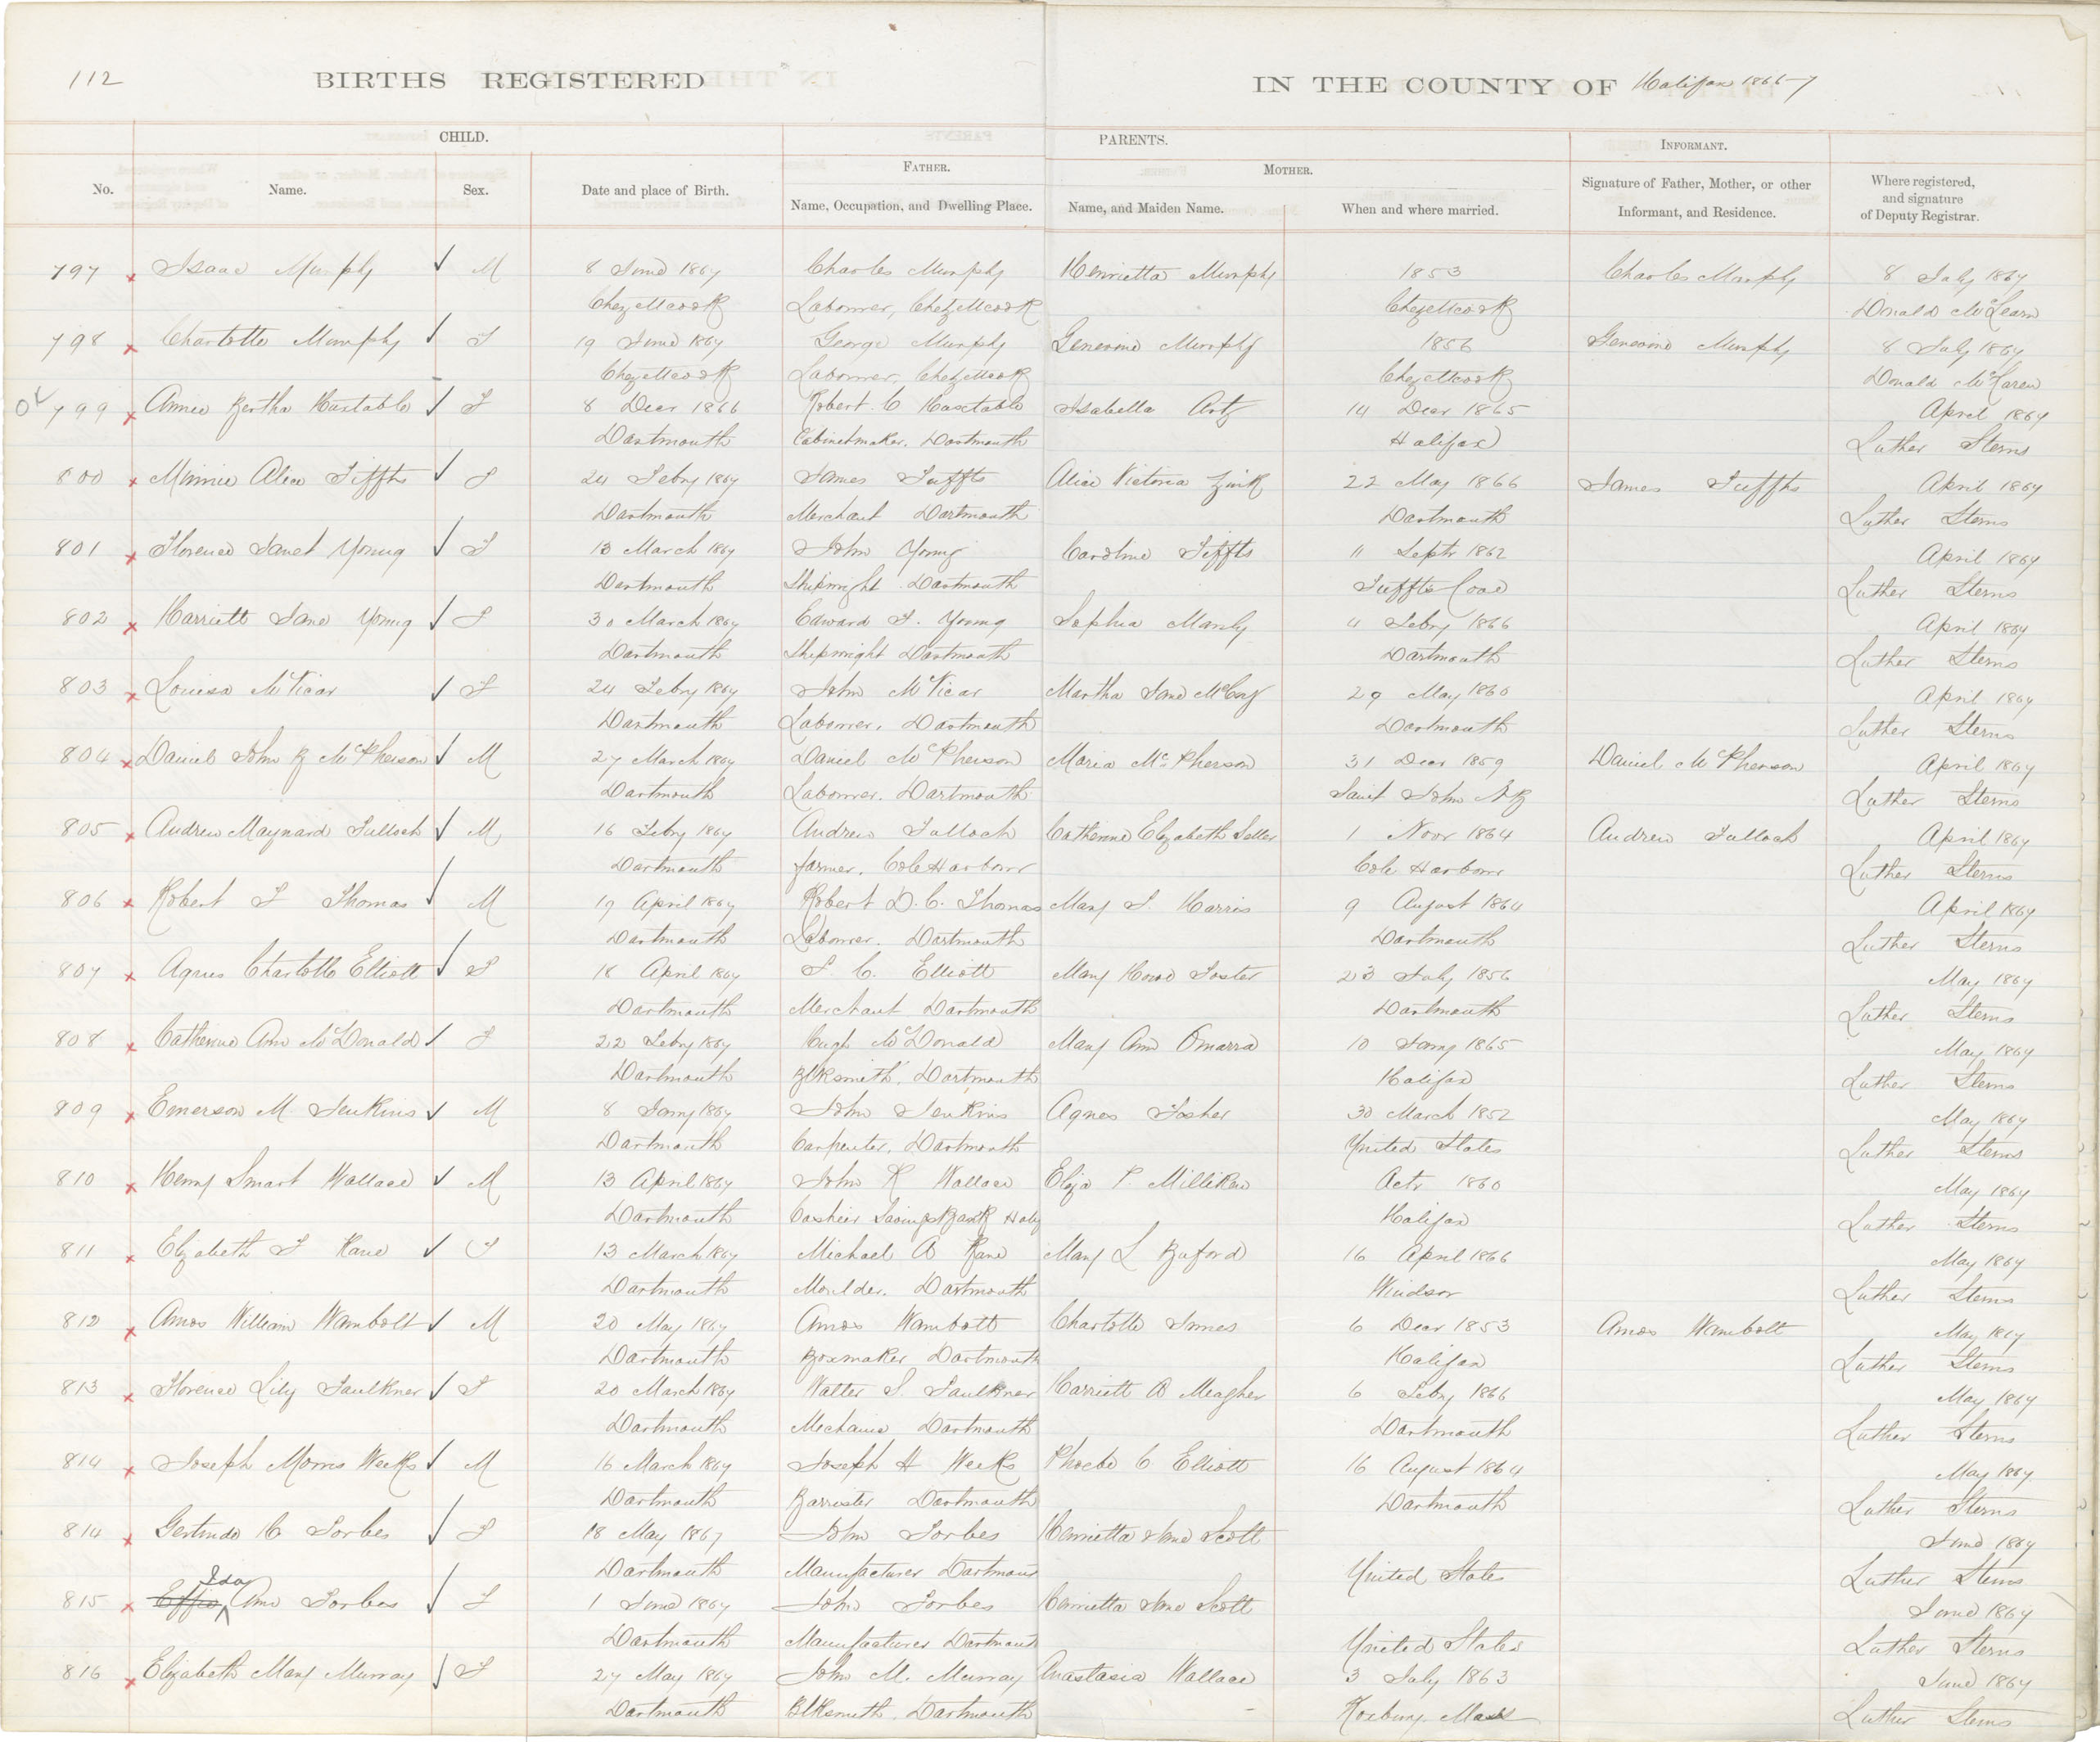 112
BIRTHS REGISTERED IN THE COUNTY OF Halifax 1866-7
CHILD. PARENTS. INFORMANT.
FATHER. MOTHER.
No. Name. Sex. Date and place of Birth. Name, Occupation, and Dwelling Place. Name, and Maiden Name. When and where married. Signature of Father, Mother, or other Informant, and Residence. Where registered, and signature of Deputy Registrar.
797 Isaac Murphy M 8 June 1867 Charles Murphy Henrietta Murphy 1853 Charles Murphy 8 July 1867
Chezettcook Labourer, Chezettcook Chezettcook Donald McLearn
798 Charlotte Murphy F 19 June 1867 George Murphy Genevive Murphy 1856 Genevive Murphy 8 July 1867
Chezettcook Labourer, Chezettcook Chezettcook Donald McLaren
799 Annie Bertha Hastable F 8 Decr 1866 Robert C Hastable Isabella Artz 14 Decr 1865 April 1867
Dartmouth Cabinetmaker, Dartmouth Halifax Luther Sterns
800 Minnie Alice Tiffts F 24 Feby 1867 James Tuffts Alice Victoria Zink 22 May 1866 James Tuffts April 1867
Dartmouth Merchant Dartmouth Dartmouth Luther Sterns
801 Florence Janet Young F 13 March 1867 John Young Caroline Tiffts 11 Septr 1862 April 1867
Dartmouth Shipwright Dartmouth Tuffts Cove Luther Sterns
802 Harriett Jane Young F 30 March 1867 Edward F. Young Sophia Manly 4 Feby 1866 April 1867
Dartmouth Shipwright Dartmouth Dartmouth Luther Sterns
803 Louisa McVicar F 24 Feby 1867 John McVicar Martha Jane McCoy 29 May 1860 April 1867
Dartmouth Labourer, Dartmouth Dartmouth Luther Sterns
804 Daniel John B McPherson M 27 March 1867 Daniel McPherson Maria McPherson 31 Decr 1859 Daniel McPherson April 1867
Dartmouth Labourer. Dartmouth Saint John NB Luther Sterns
805 Andrew Maynard Tulloch M 16 Feby 1867 Andrew Tulloch Catherine Elizabeth Settle 1 Novr 1864 Andrew Tulloch April 1867
Dartmouth farmer, Cole Harbour Cole Harbour Luther Sterns
806 Robert F Thomas M 19 April 1867 Robert D. C. Thomas Mary S. Harris 9 August 1864 April 1867
Dartmouth Labourer. Dartmouth Dartmouth Luther Sterns
807 Agnes Charlotte Elliott F 18 April 1867 J. C. Elliott Mary Howe Foster 23 July 1856 May 1867
Dartmouth Merchant Dartmouth Dartmouth Luther Sterns
808 Catherine Ann McDonald F 22 Feby 1867 Hugh McDonald Mary Ann Omarra 10 Jany 1865 May 1867
Dartmouth Blksmith, Dartmouth Halifax Luther Sterns
809 Emerson M Jenkins M 8 Jany 1867 John Jenkins Agnes Fosher 30 March 1852 May 1867
Dartmouth Carpenter, Dartmouth United States Luther Sterns
810 Henry Smart Wallace M 13 April 1867 John R Wallace Eliza P Milliken Octr 1860 May 1867
Dartmouth Cashier Savings Bank Halifax Luther Sterns
811 Elizabeth F Kane F 13 March 1867 Michael A Kane Mary L Buford 16 April 1866 May 1867
Dartmouth Moulder. Dartmouth Windsor Luther Sterns
812 Amos William Wambolt M 20 May 1867 Amos Wambolt Charlotte James 6 Decr 1853 Amos Wambolt May 1867
Dartmouth Boxmaker Dartmouth Halifax Luther Sterns
813 Florence Lily Faulkner F 20 March 1867 Walter S. Faulkner Harriett A Meagher 6 Feby 1866 May 1867
Dartmouth Mechanic Dartmouth Dartmouth Luther Sterns
814 Joseph Morris Weeks M 16 March 1867 Joseph H Weeks Phoebe C Elliott 16 August 1864 May 1867
Dartmouth Barrister Dartmouth Dartmouth Luther Sterns
814 Gertrude H Forbes F 18 May 1867 John Forbes Henrietta Jane Scott June 1867
Dartmouth Manufacturer Dartmouth United States Luther Sterns
Ida
815 Effie Ann Forbes F 1 June 1867 John Forbes Henrietta Jane Scott June 1867
Dartmouth Manufacturer Dartmouth United States Luther Sterns
816 Elizabeth Mary Murray F 27 May 1867 John M. Murray Anastasia Wallace 3 July 1863 June 1867
Dartmouth Blksmith. Dartmouth Roxbury Mass Luther Sterns